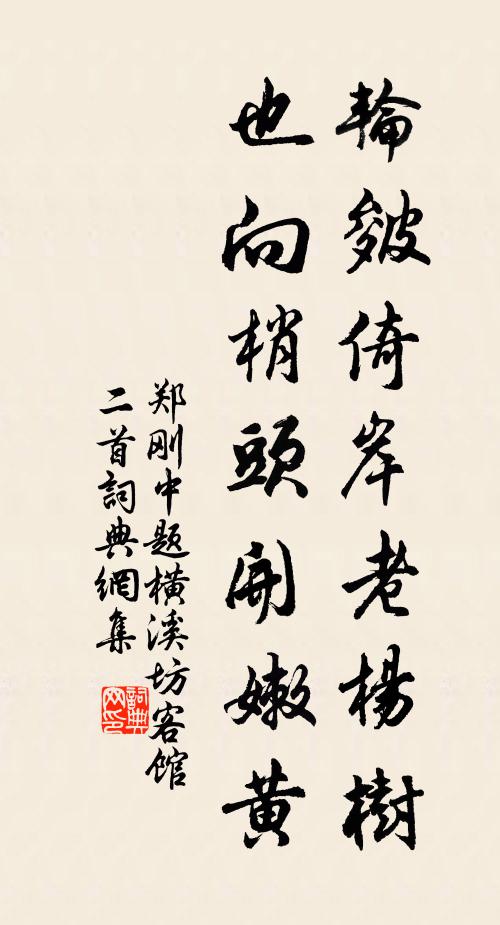 輪皴倚岸老楊樹
也向梢頭開嫩黃
郑刚中题橫溪坊客馆
二首詞典網集
詞典网印